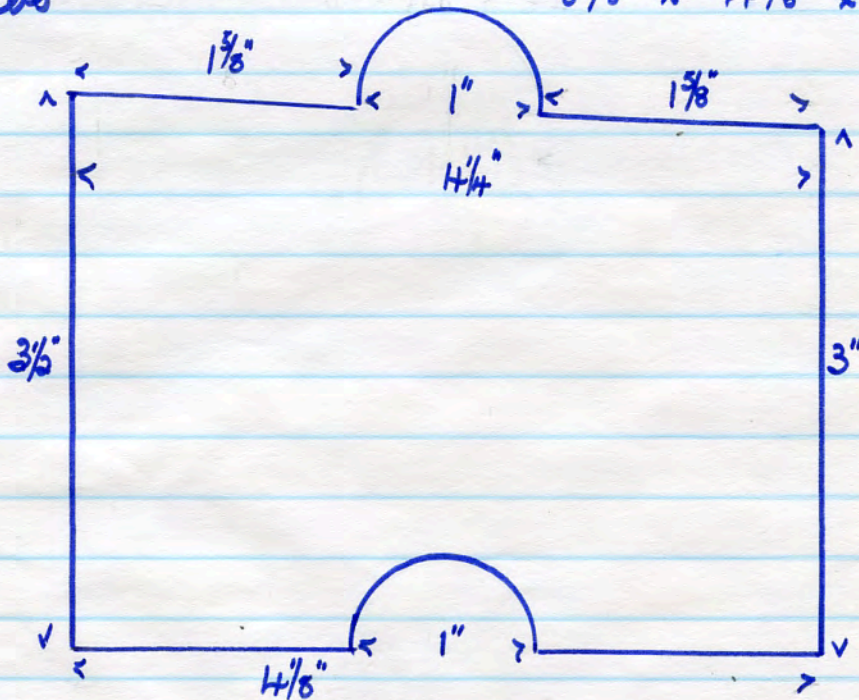 1 5/8"
1" 1 5/8"
4 1/4"
3 1/2" 3"
1"
4 1/8"